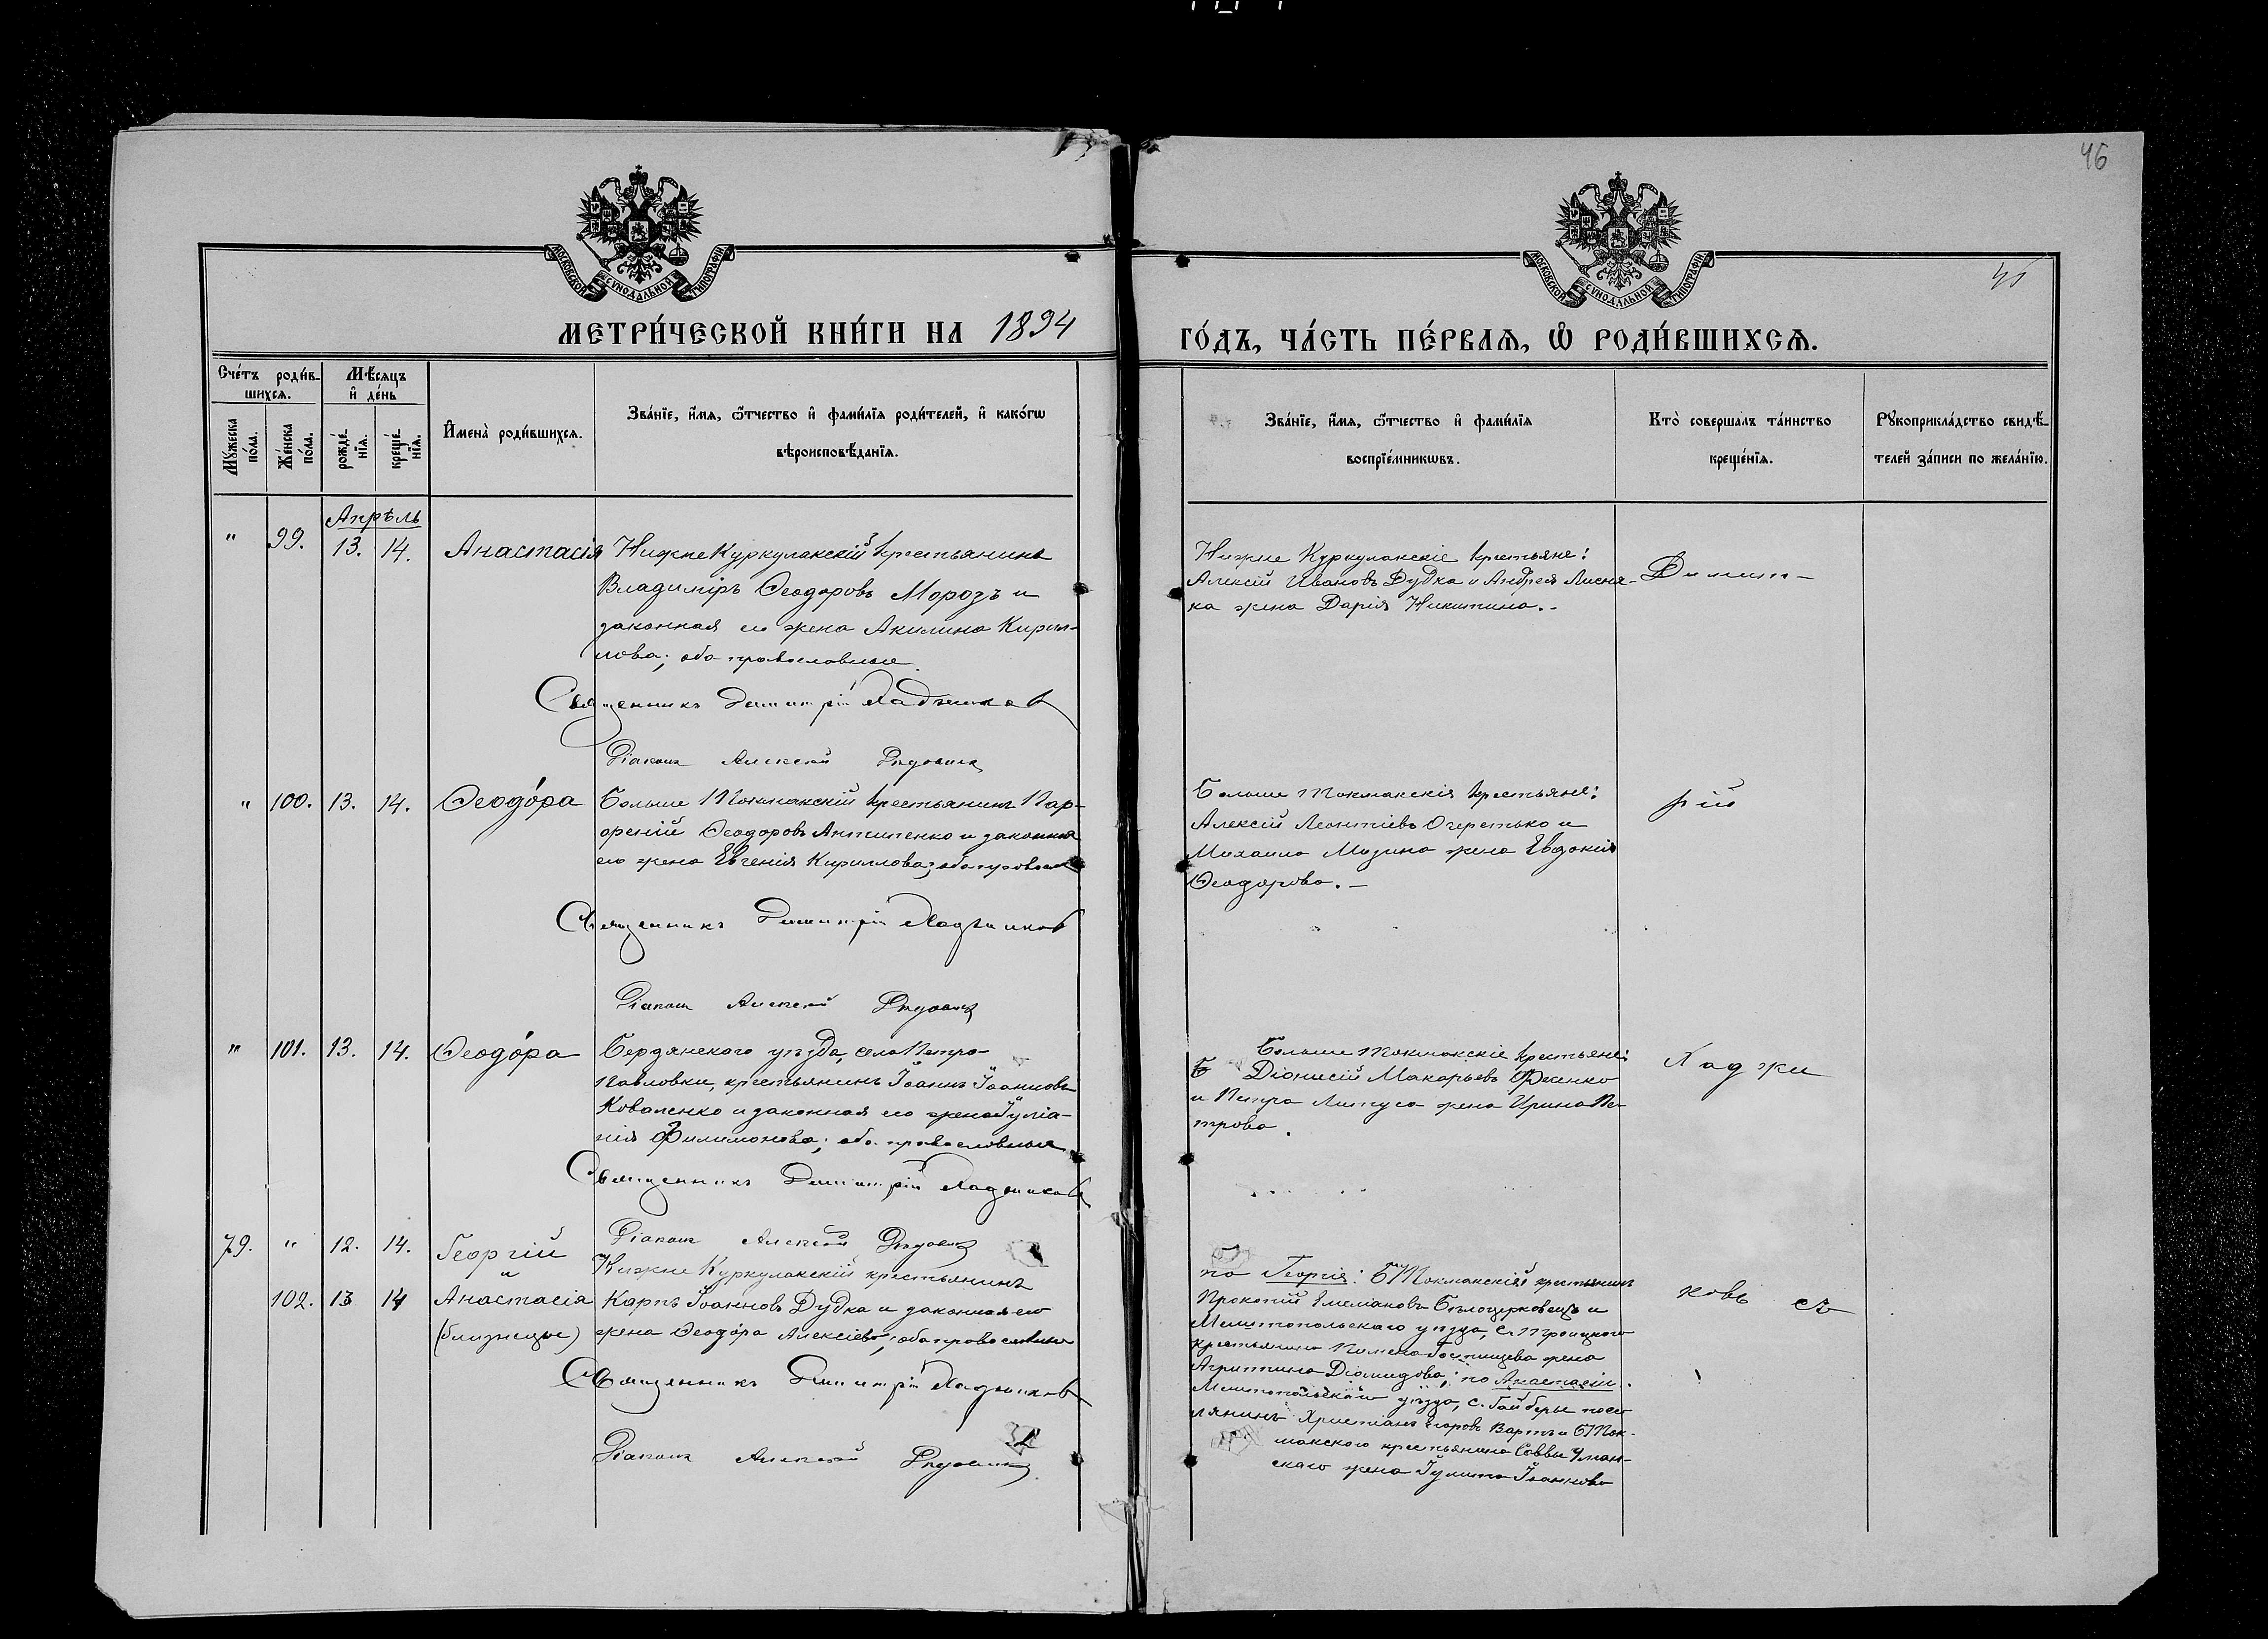 46
МОСКОВСКОЙ СѴНОДАЛЬНОЙ ТИПОГРАФІИ
МОСКОВСКОЙ СѴНОДАЛЬНОЙ ТИПОГРАФІИ
45
МЕТРИ́ЧЕСКОЙ КНИ́ГИ НА 1894
ГО́ДЪ, ЧА́СТЬ ПЕ́РВАѦ, Ѽ РОДИ́ВШИХСѦ.
Сче́тъ роди́в-
шихсѧ.
Мѣ́сѧцъ
и҆ де́нь
Мꙋ́жеска
по́ла.
Же́нска
по́ла.
рожде́-
нїѧ.
креще́-
нїѧ.
И҆мена̀ роди́вшихсѧ.
Зва́нїе, и҆́мѧ, ѻ҆́тчество и҆ фами́лїѧ роди́телей, и҆ како́гѡ
вѣроисповѣ́данїѧ.
Зва́нїе, и҆́мѧ, ѻ҆́тчество и҆ фами́лїѧ
воспрїе́мникѡвъ.
Кто̀ совершалъ та́инство
креще́нїѧ.
Рꙋкоприкла́дство свидѣ́-
телей за́писи по жела́нїю.
Апрѣль
" 99. 13. 14. Анастасія
НижнеКуркулакскій крестьянинъ
Владиміръ Ѳеодоровъ Морозъ и
законная его жена Акилина Кирил-
лова; оба православные
Священникъ Димитрій Хаджиковъ
Діаконъ Алексей
Нижне Куркулакскіе крестьяне:
Алексій Ивановъ Дудка и Андрея Лисня-
ка жена Дарія Никитина.-
Димит-
" 100. 13. 14. Ѳеодо́ра
Больше Токмакскій крестьянинъ Пар-
ѳеній Ѳеодоровъ Антипенко и законная
его жена Евгенія Кириллова; оба православ
Священникъ Димитрій Хаджиковъ
Діаконъ Алексей
Больше Токмакскія крестьяне:
Алексій Леонтіевъ Очеретько и
Михаила Мизина жена Евдокія
Ѳеодорова. -
рій
" 101. 13. 14. Ѳеодо́ра
Бердянскаго уѣзда, села Петро-
павловки, крестьянинъ Іоаннъ Іоанновъ
Коваленко и законная его жена Іуліа-
нія Филимонова; оба православные
Священникъ Димитрій Хаджиковъ
Діаконъ Алексей
Больше Токмакскіе крестьяне:
Діонисій Макарьевъ
и Петра жена Ирина Пе-
трова.
Хаджи
79. " 12. 14. Георгій
и
102. 13 14 Анастасія
(близнецы)
Нижне Куркулакскій крестьянинъ
Карпъ Іоанновъ Дудка и законная его
жена Ѳеодо́ра Алексіева; оба православные
Священникъ Димитрій Хаджиковъ
Діаконъ Алексей
по Георгія: Б Токмакскій крестьянинъ
Прокопій Емеліановъ Бѣлоцерковецъ и
Мелитопольскаго уѣзда, с. Троицкаго
крестьянина Пимена жена
Агрипина Діомидова; по Анастасіи.
Мелитопольскаго уѣзда, с. Гайдберъ посе
лянинъ Христіанъ Егоровъ Вартъ и Б Ток-
макскаго крестьянина Саввы Уман-
скаго жена Іулита Іоаннова
ковъ съ